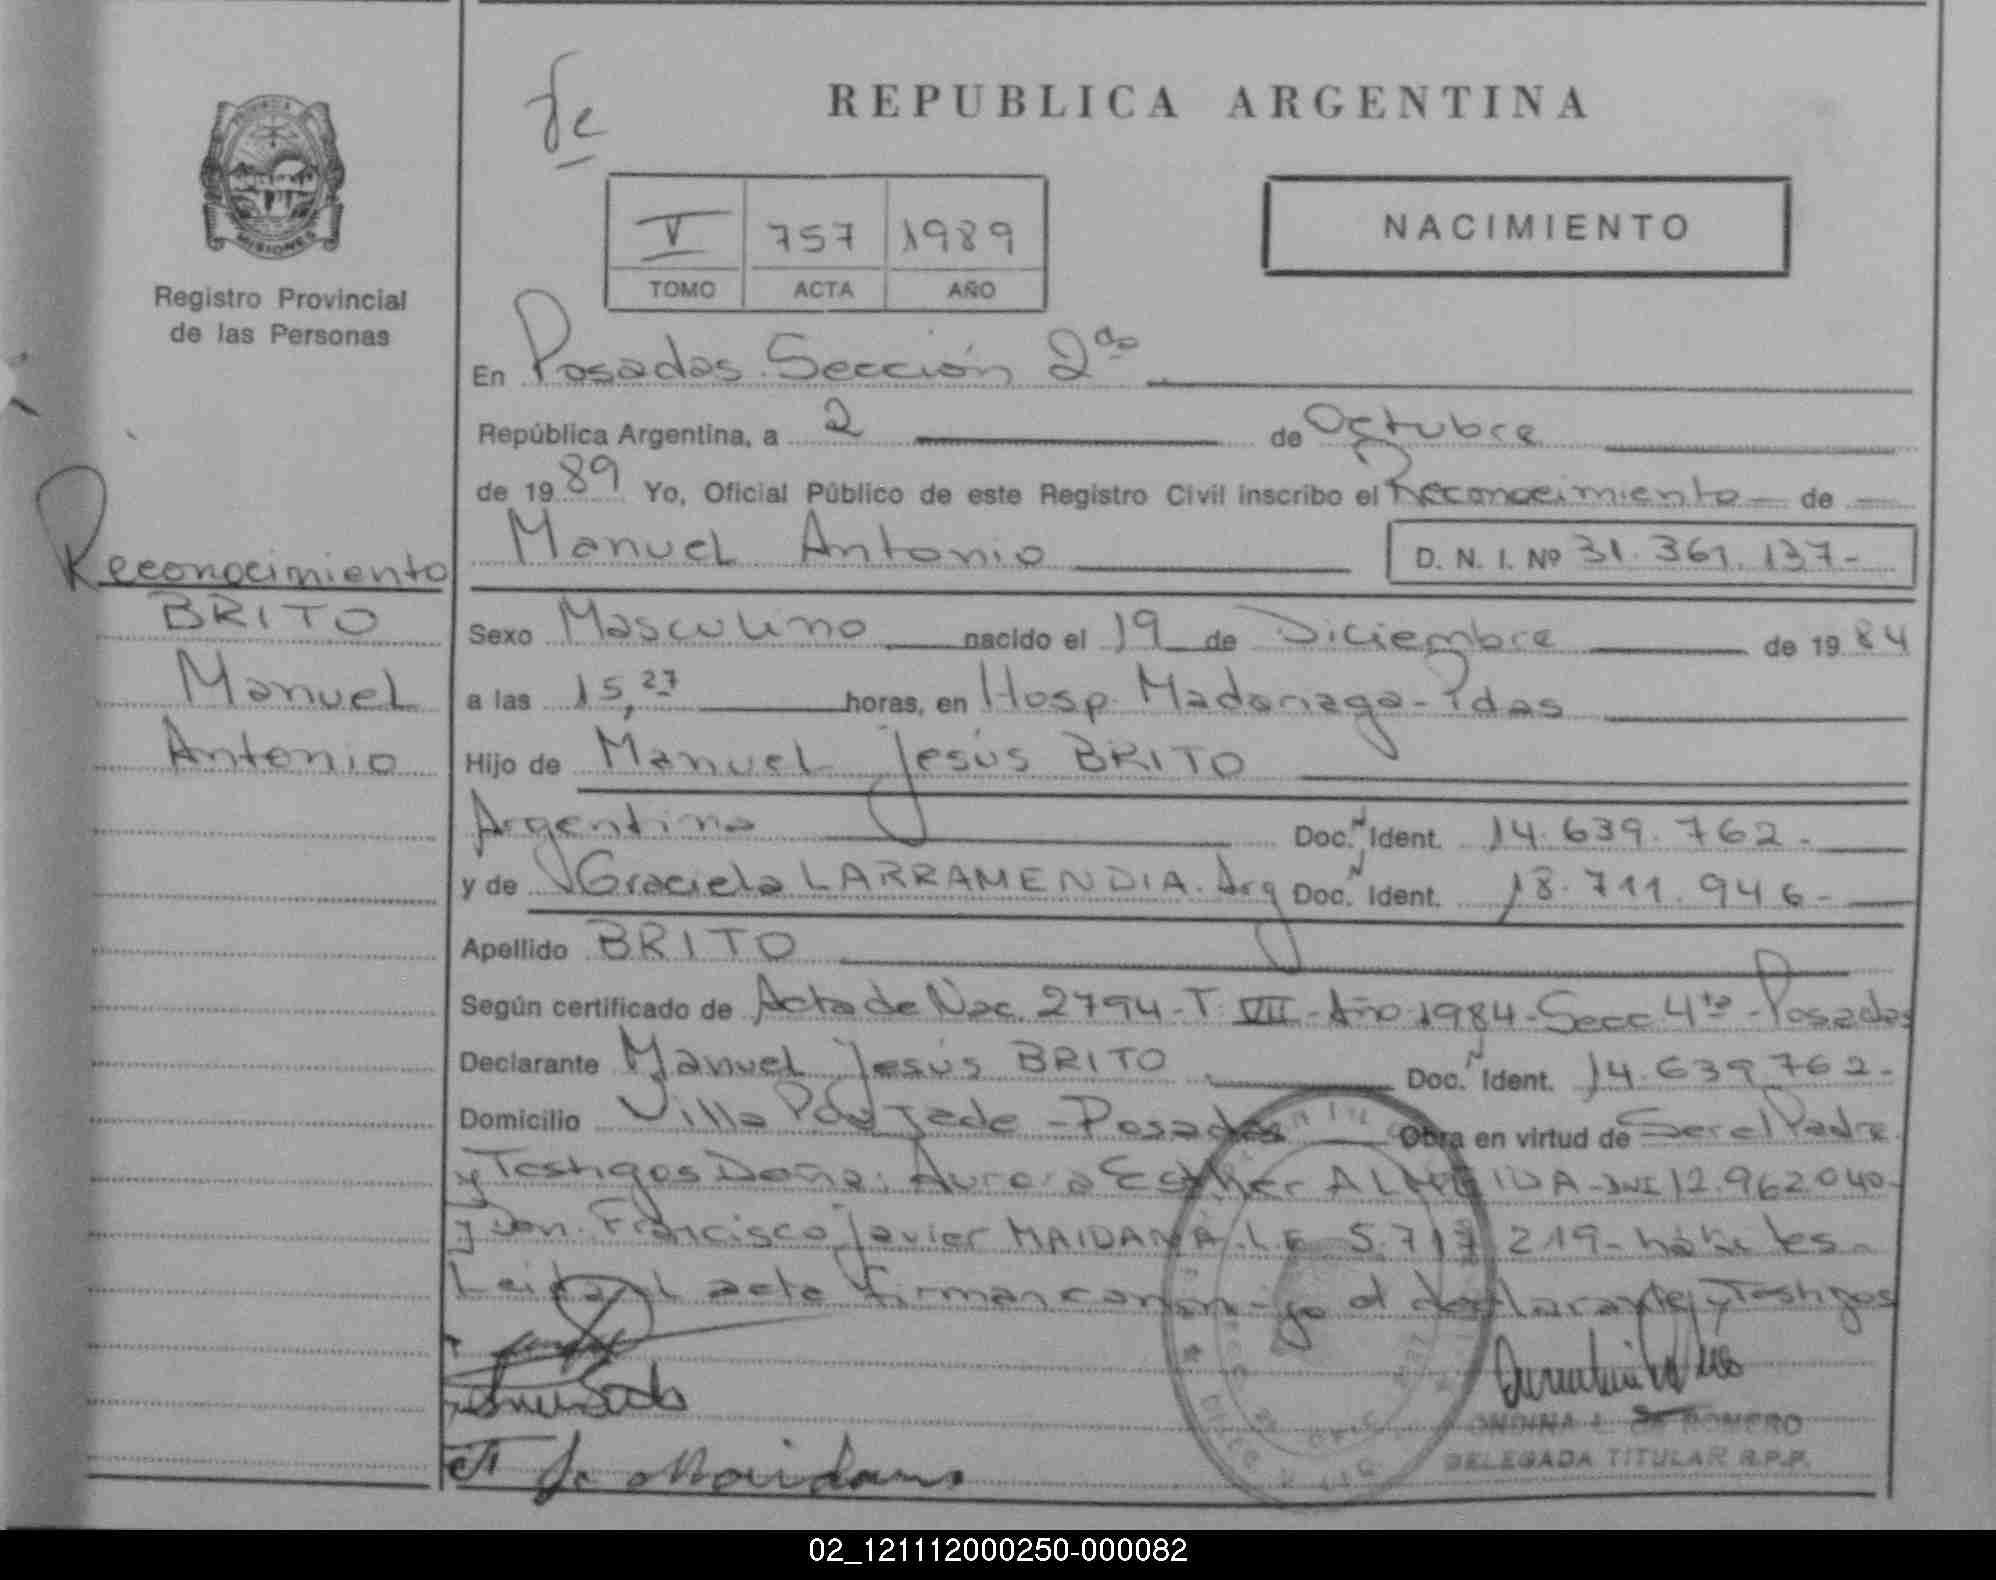 REPUBLICA ARGENTINA
MISIONES
Registro Provincial
de las Personas
V 757 1989
TOMO ACTA AÑO
NACIMIENTO
En Posadas Sección 2da
República Argentina, a 2 de Octubre
de 1989 Yo, Oficial Público de este Registro Civil inscribo el Reconocimiento de
Manuel Antonio D. N. I. Nº 31.361.137-
Reconocimiento
BRITO
Manuel
Antonio
Sexo Masculino nacido el 19 de Diciembre de 1984
a las 15,27 horas, en Hosp. Madariaga-Pdas
Hijo de Manuel Jesús BRITO
Argentino Doc. Ident. 14.639.762-
y de Graciela LARRAMENDIA. Arg Doc. Ident. 18.711.946-
Apellido BRITO
Según certificado de Acta de Nac. 2794-T. VII-Año 1984-Secc 4ta-Posadas
Declarante Manuel Jesús BRITO Doc. Ident. 14.639.762-
Domicilio Villa Posadas Obra en virtud de Ser el Padre
y Testigos Doña: Aurora Esther ALMEIDA-DNI 12.962.040-
y Don Francisco Javier MAIDANA. L.E. 219-hábiles-
Leida el acta firman conmigo el declarante y Testigos
ONDINA DE ROMERO
DELEGADA TITULAR R.P.P.
02_121112000250-000082